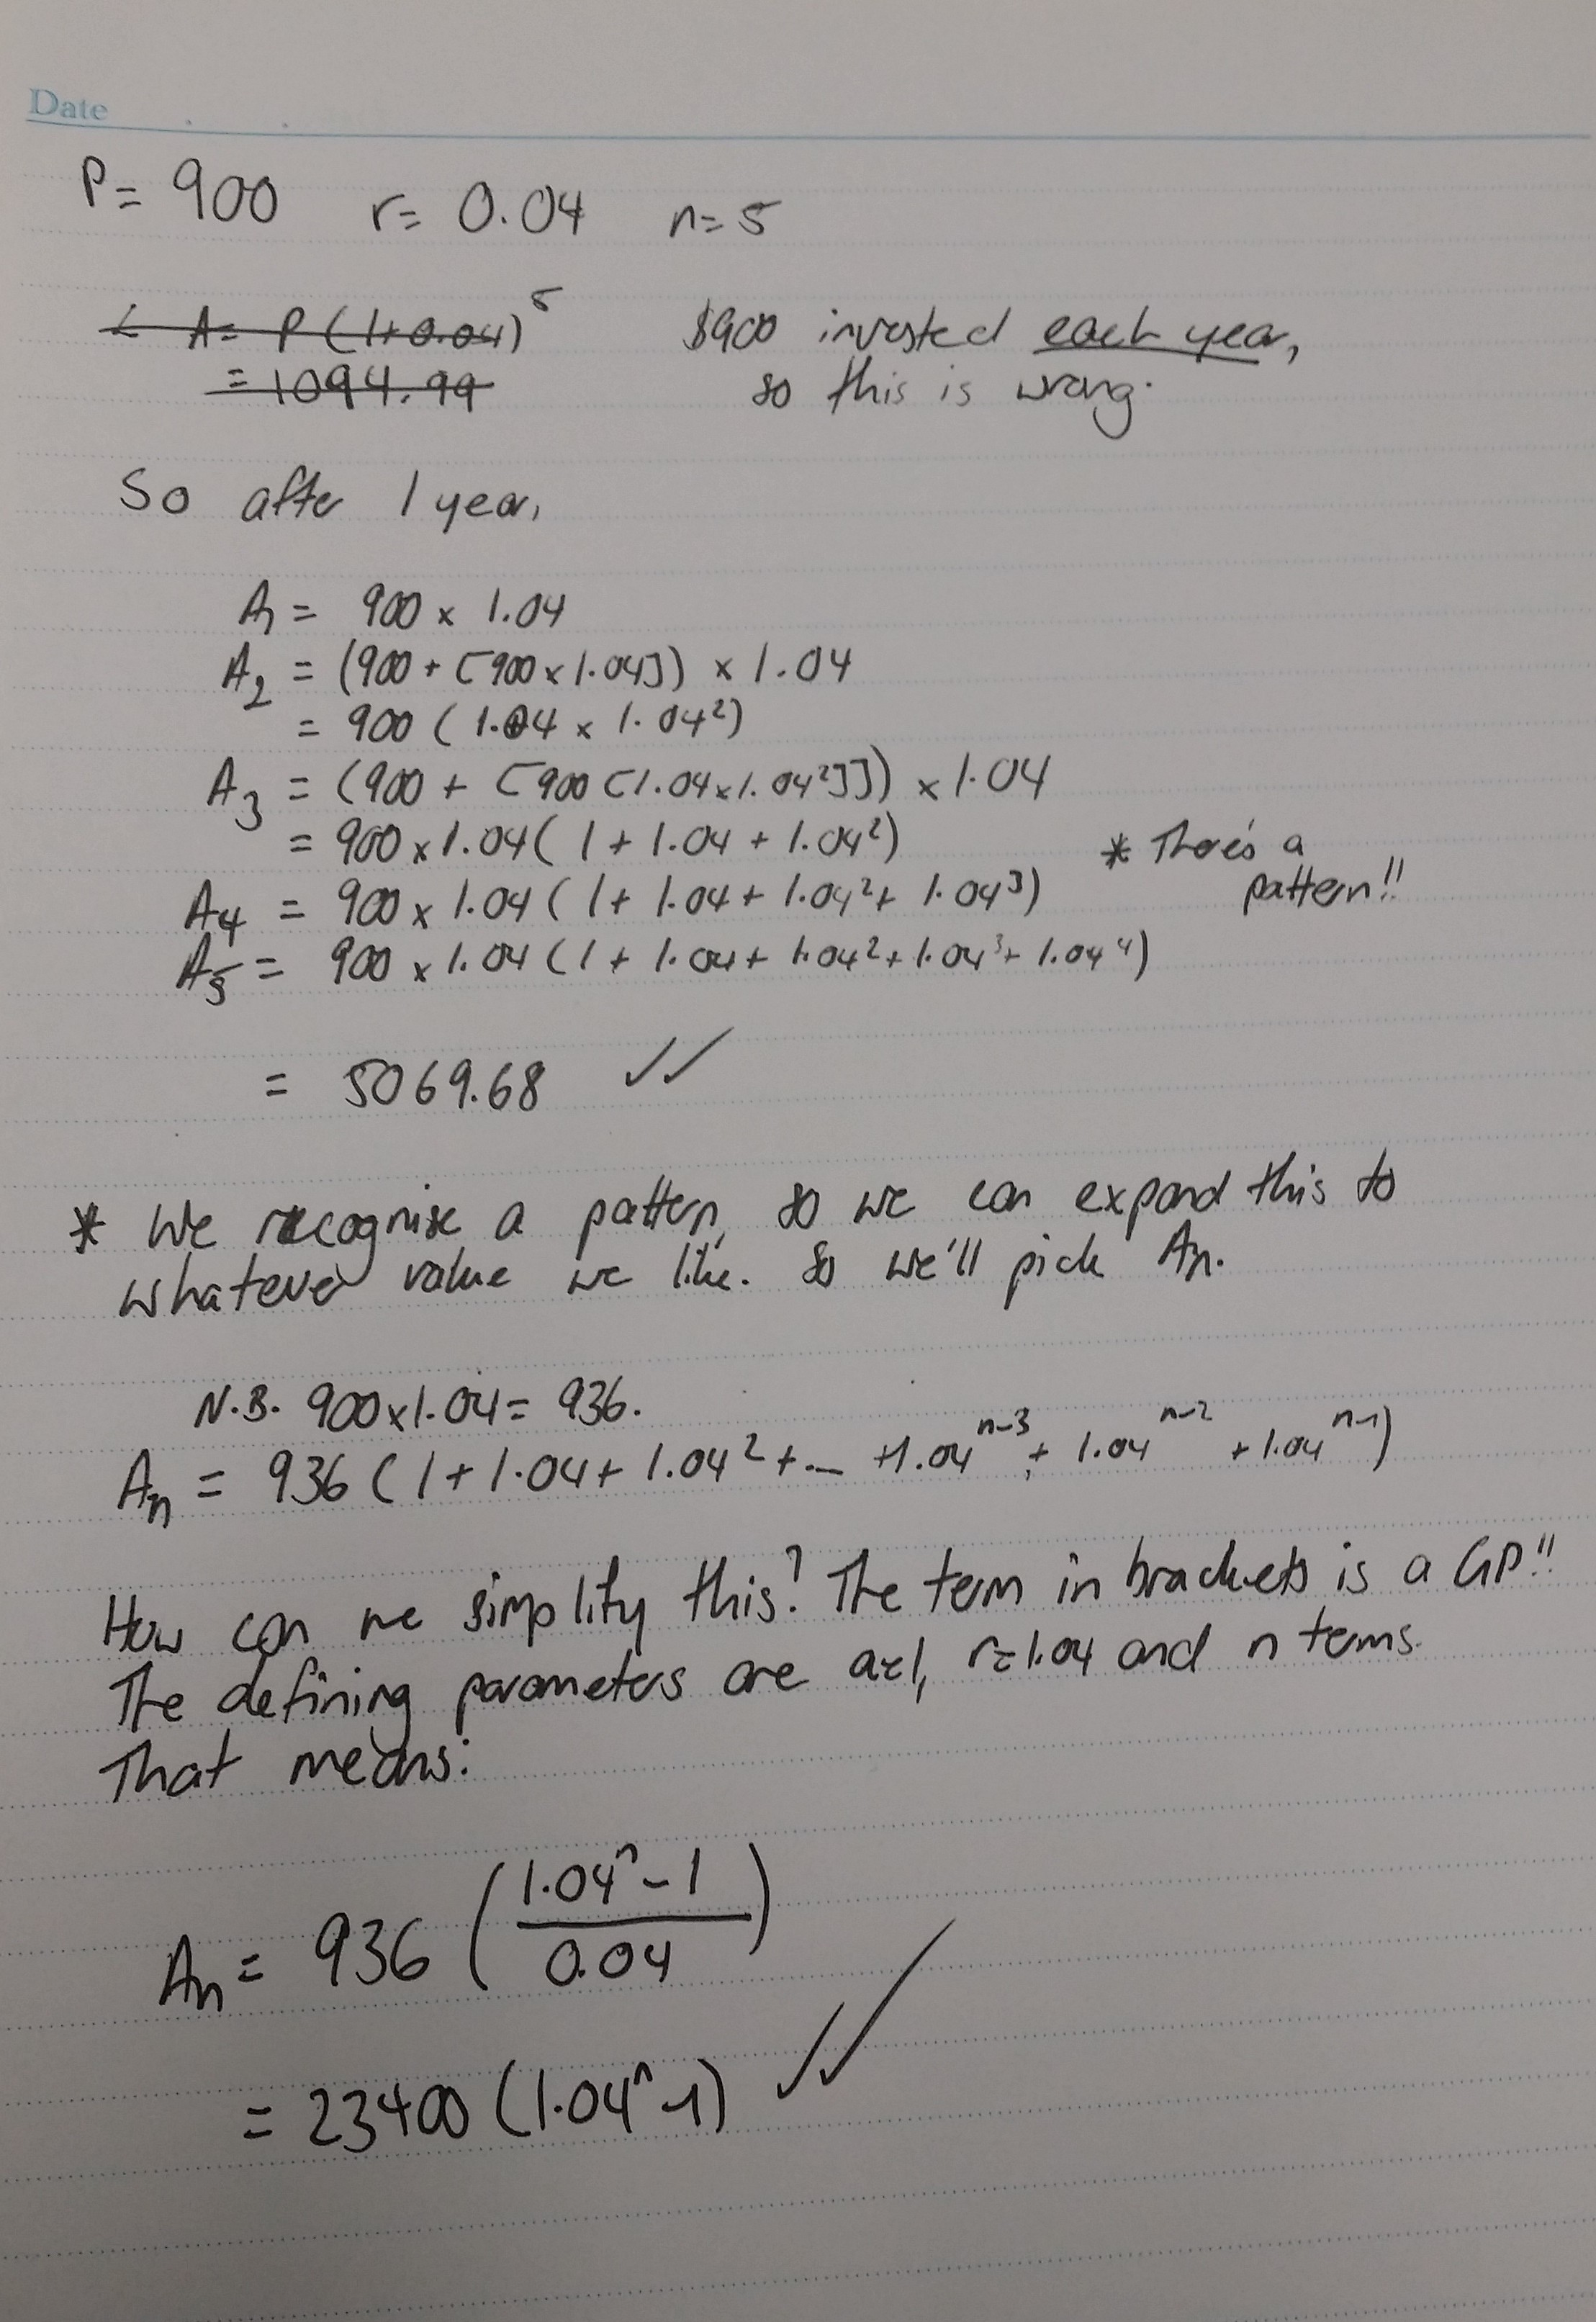 Date
P= 900 r= 0.04 n= 5
A= P(1+0.04)^5 $900 invested each year,
= 1094.99 so this is wrong.
So after 1 year,
A₁ = 900 × 1.04
A₂ = (900 + [900 × 1.04]) × 1.04
= 900 (1.04 × 1.04²)
A₃ = (900 + [900 [1.04 × 1.04²]]) × 1.04
= 900 × 1.04 (1 + 1.04 + 1.04²) * There's a
A₄ = 900 × 1.04 (1 + 1.04 + 1.04² + 1.04³) pattern!!
A₅ = 900 × 1.04 (1 + 1.04 + 1.04² + 1.04³ + 1.04⁴)
= 5069.68 ✓✓
* We recognise a pattern, so we can expand this to
whatever value we like. So we'll pick Aₙ.
N.B. 900×1.04 = 936.
Aₙ = 936 (1 + 1.04 + 1.04² + ... + 1.04^(n-3) + 1.04^(n-2) + 1.04^(n-1))
How can we simplify this? The term in brackets is a GP!!
The defining parameters are a=1, r=1.04 and n terms.
That means:
Aₙ = 936 ((1.04ⁿ - 1)/0.04)
= 23400 (1.04ⁿ - 1) ✓✓